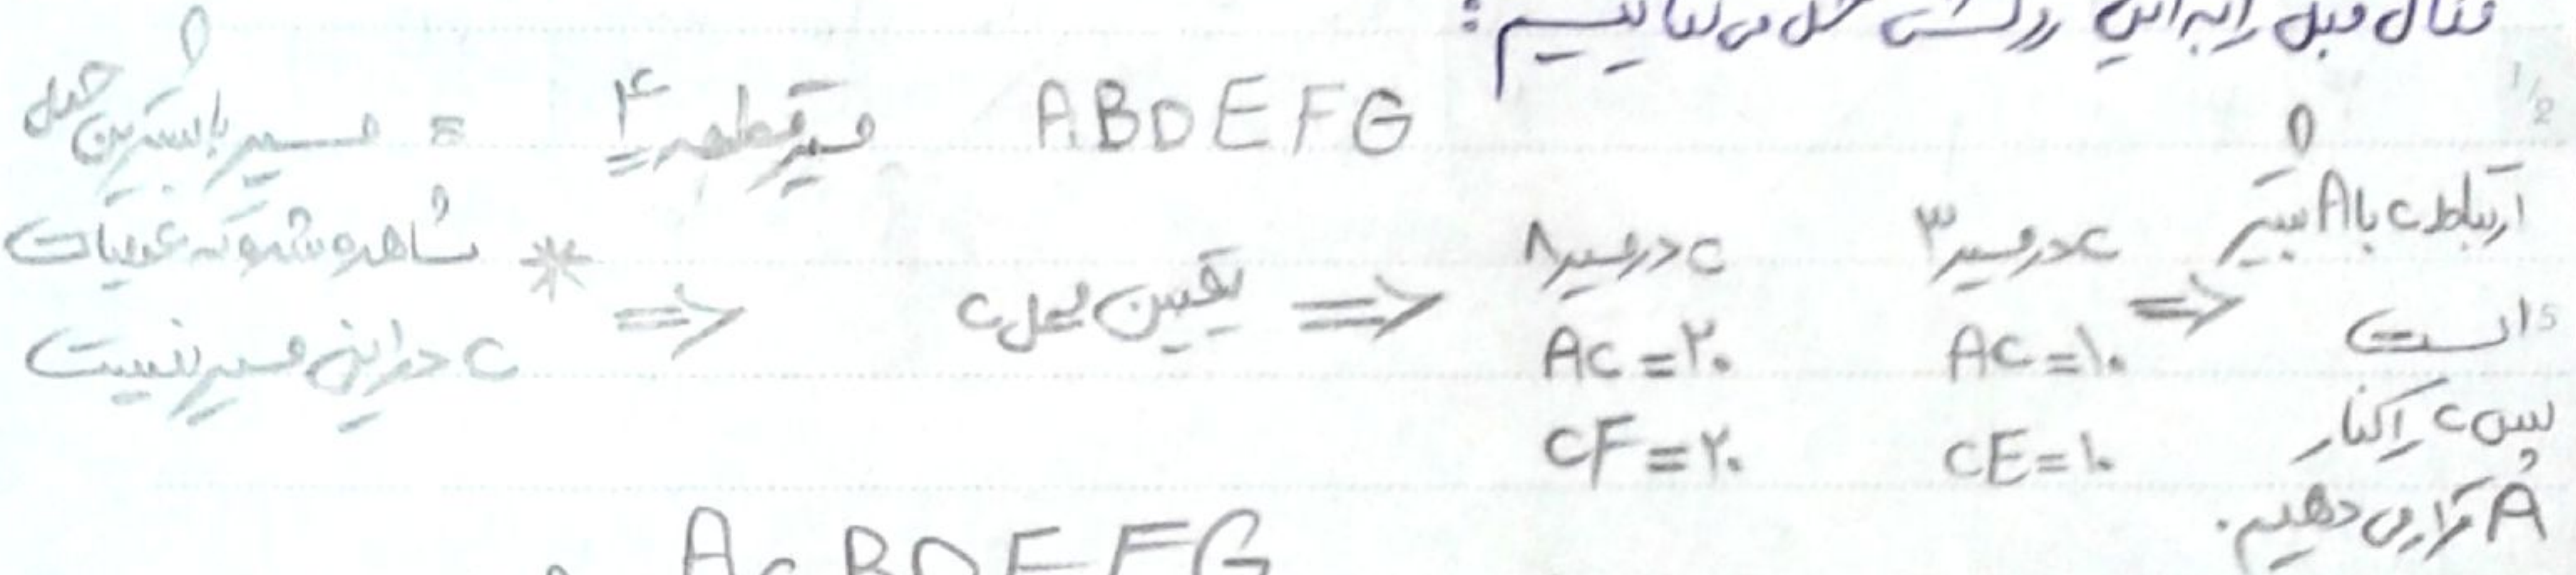 مثال قبل را به این روش حل می‌نماییم:
مسیر با بیشترین حمل = مسیر قطعه ۴ ABDEFG
* مشاهده شود که عملیات C در این مسیر نیست => تعیین محل C =>
C در مسیر ۸
AC = ۲۰
CF = ۲۰
C در مسیر ۳
AC = ۱۰
CE = ۱۰
=>
ارتباط C با A بیشتر
است
پس C را کنار
A قرار می‌دهیم.
ACBDEFG